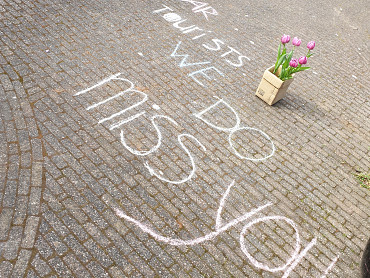 AR
TouriSTS
WE
DO
miss
you